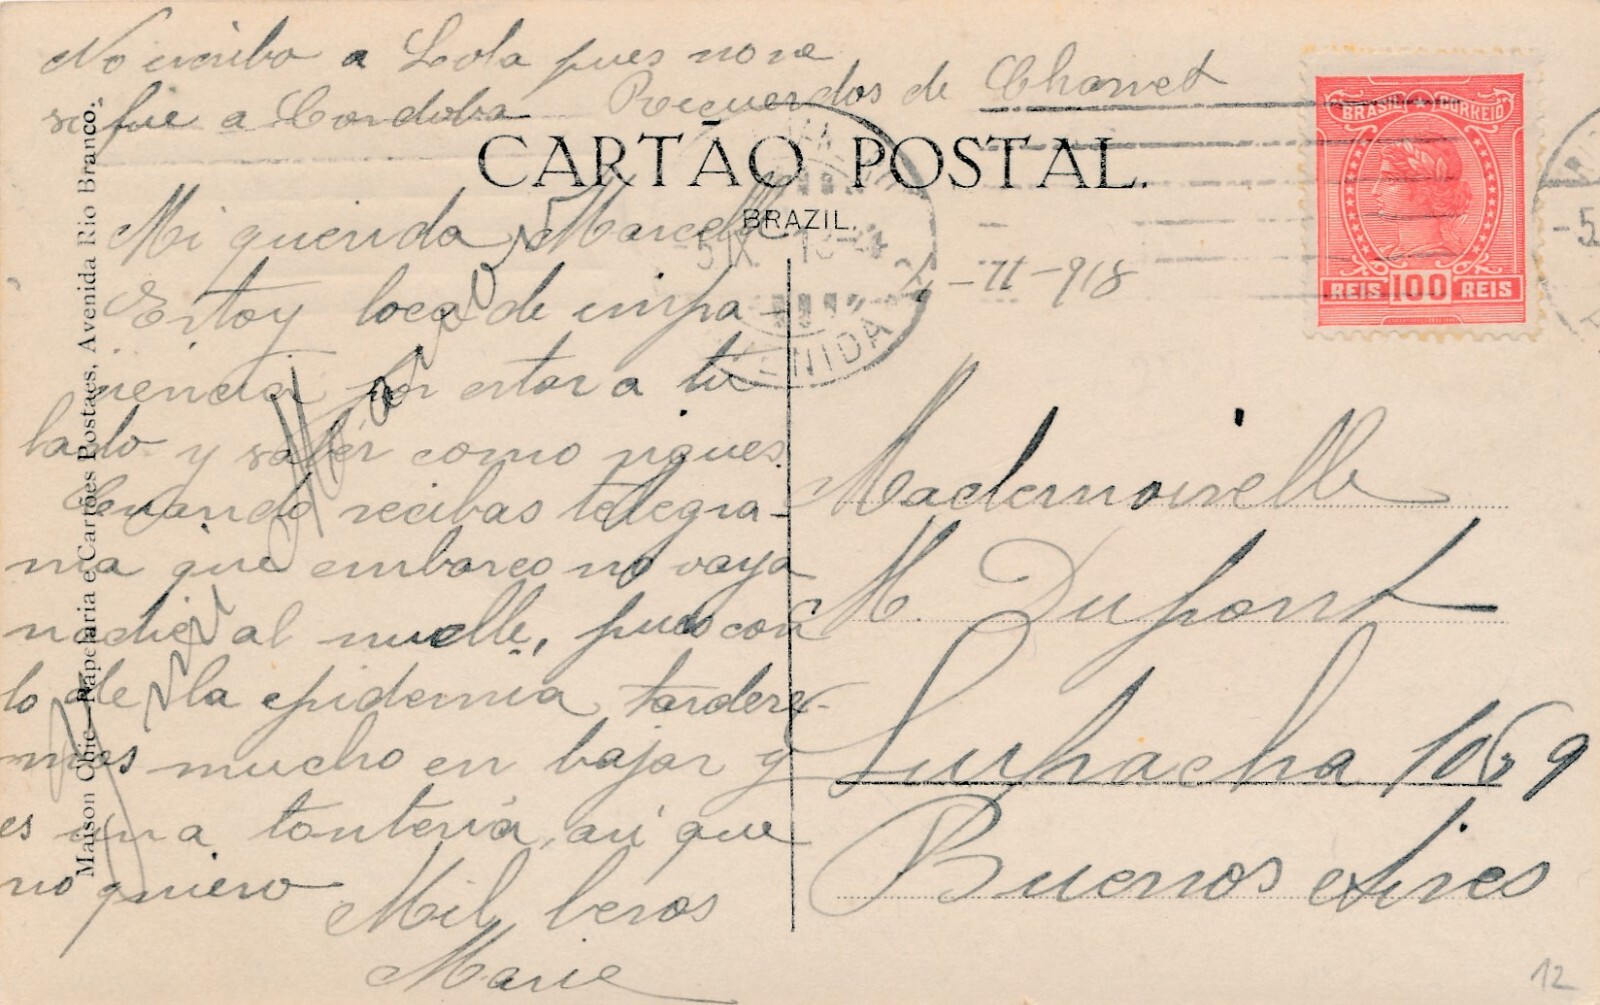 No escribo a Lola pues no se
si fue a Cordoba
Recuerdos de Charvet
CARTÃO POSTAL.
BRAZIL.
BRASIL CORREIO
REIS 100 REIS
5 IX
-II-918
AVENIDA
-5
Mi querida Marcelle
Estoy loca de impa-
ciencia por estar a tu
lado y saber como sigues
Cuando recibas telegra-
ma que embarco no vaya
nadie al muelle, pues con
lo de la epidemia tardere-
mos mucho en bajar y
es una tonteria, asi que
no quiero
Mil besos
Marie
Mademoiselle
M. Dupont
Suipacha 1059
Buenos Aires
Maison Chic—Papelaria e Cartões Postaes, Avenida Rio Branco.
12